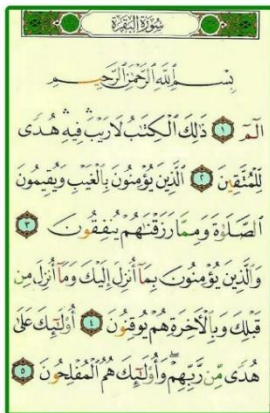 سُورَةُ الْبَقَرَةِ
بِسْمِ اللَّهِ الرَّحْمَٰنِ الرَّحِيمِ
الٓمٓ ١ ذَٰلِكَ الْكِتَٰبُ لَا رَيْبَ ۛ فِيهِ ۛ هُدًى
لِّلْمُتَّقِينَ ٢ الَّذِينَ يُؤْمِنُونَ بِالْغَيْبِ وَيُقِيمُونَ
الصَّلَوٰةَ وَمِمَّا رَزَقْنَٰهُمْ يُنفِقُونَ ٣
وَالَّذِينَ يُؤْمِنُونَ بِمَآ أُنزِلَ إِلَيْكَ وَمَآ أُنزِلَ مِن
قَبْلِكَ وَبِالْأَخِرَةِ هُمْ يُوقِنُونَ ٤ أُو۟لَٰٓئِكَ عَلَىٰ
هُدًى مِّن رَّبِّهِمْ ۖ وَأُو۟لَٰٓئِكَ هُمُ الْمُفْلِحُونَ ٥